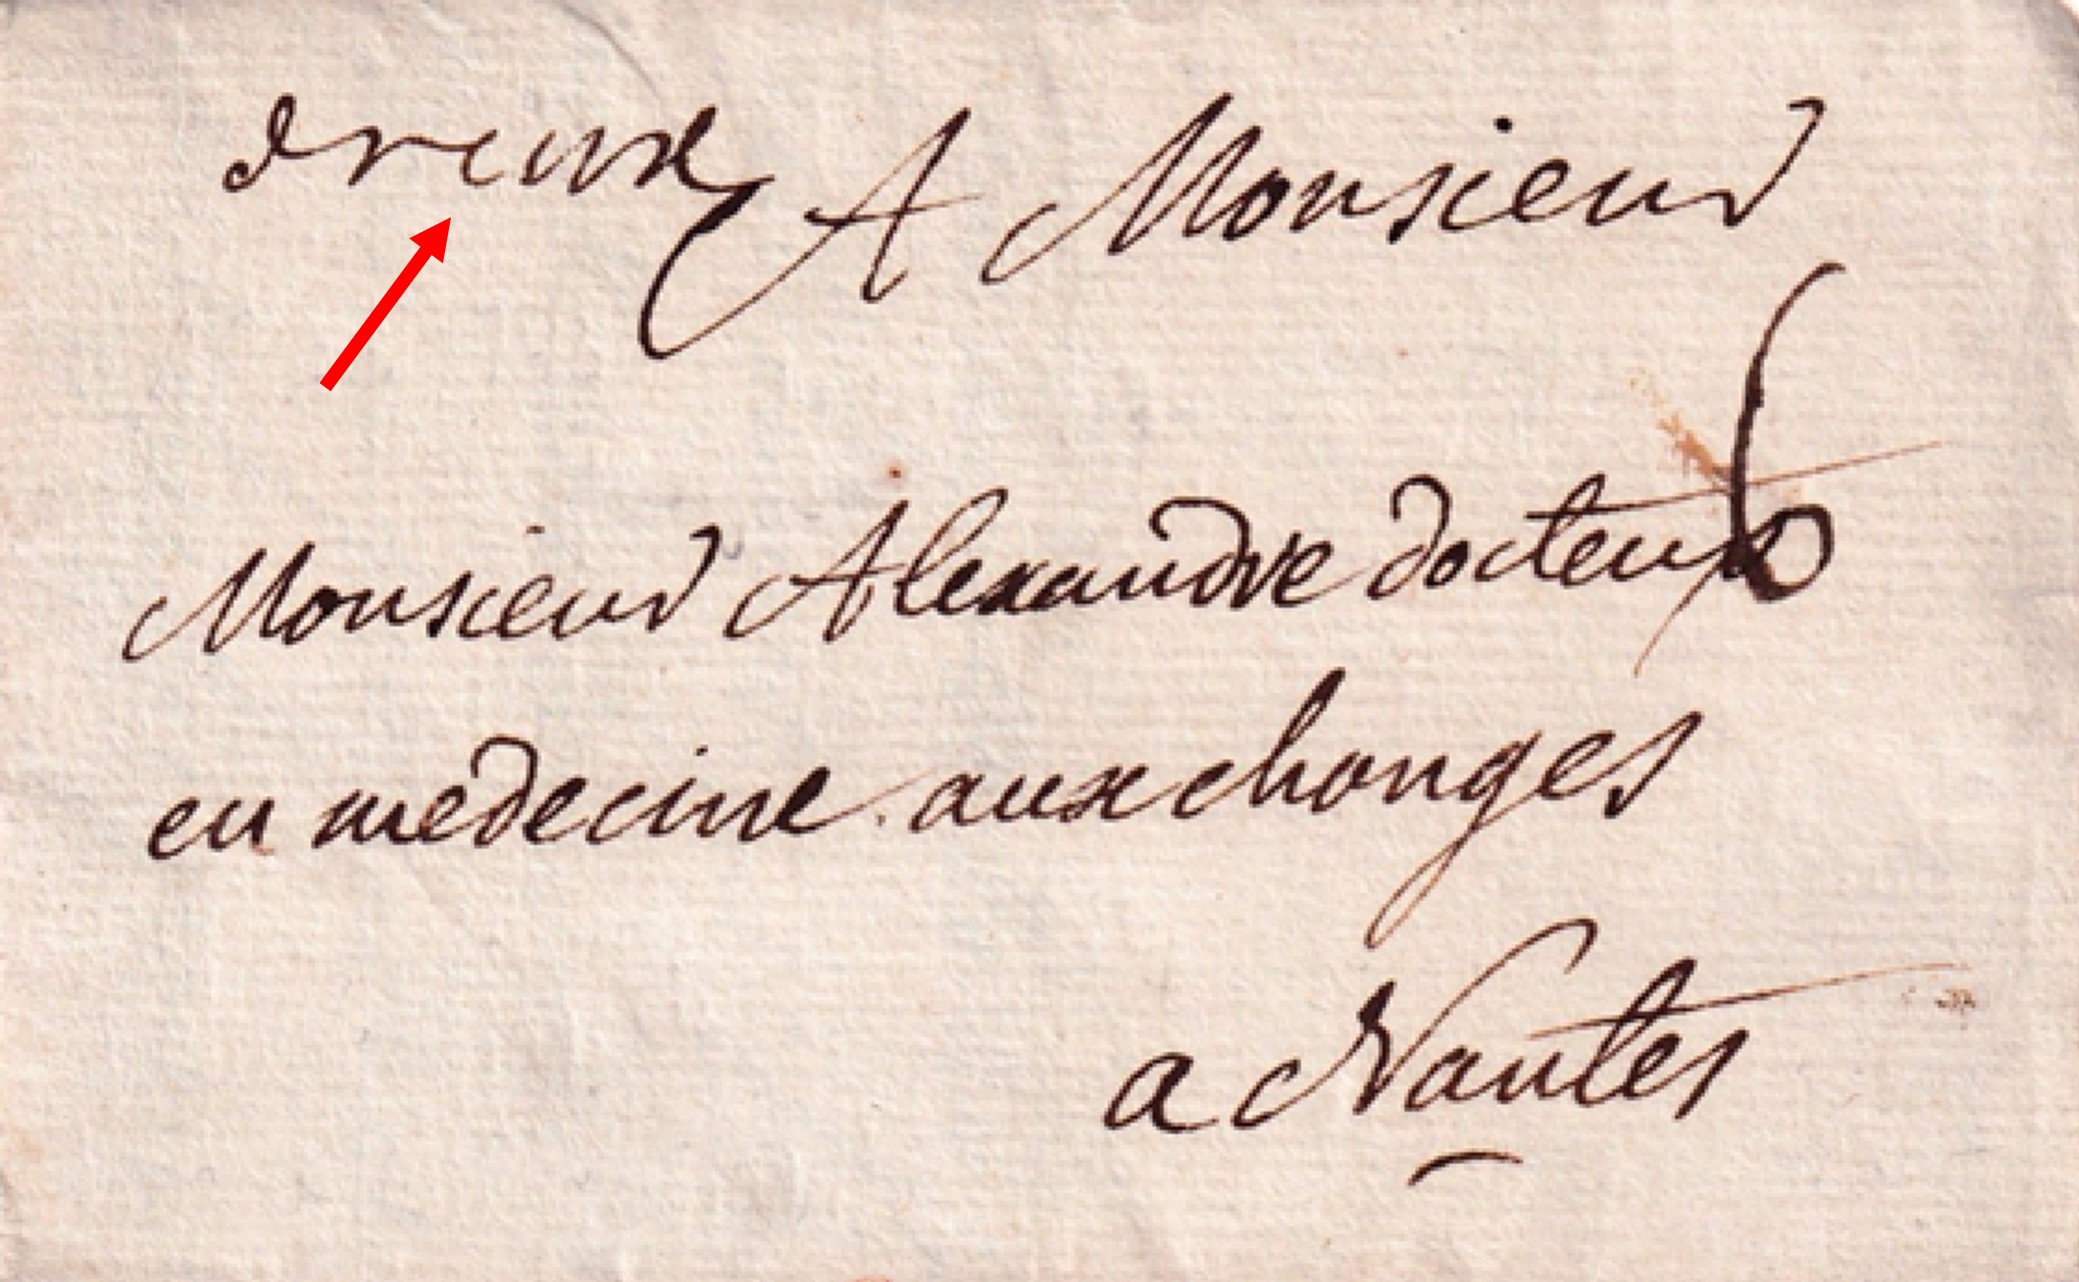 dreux A Monsieur
6
Monsieur Alexandre docteur
en medecine aux changes
a Nantes